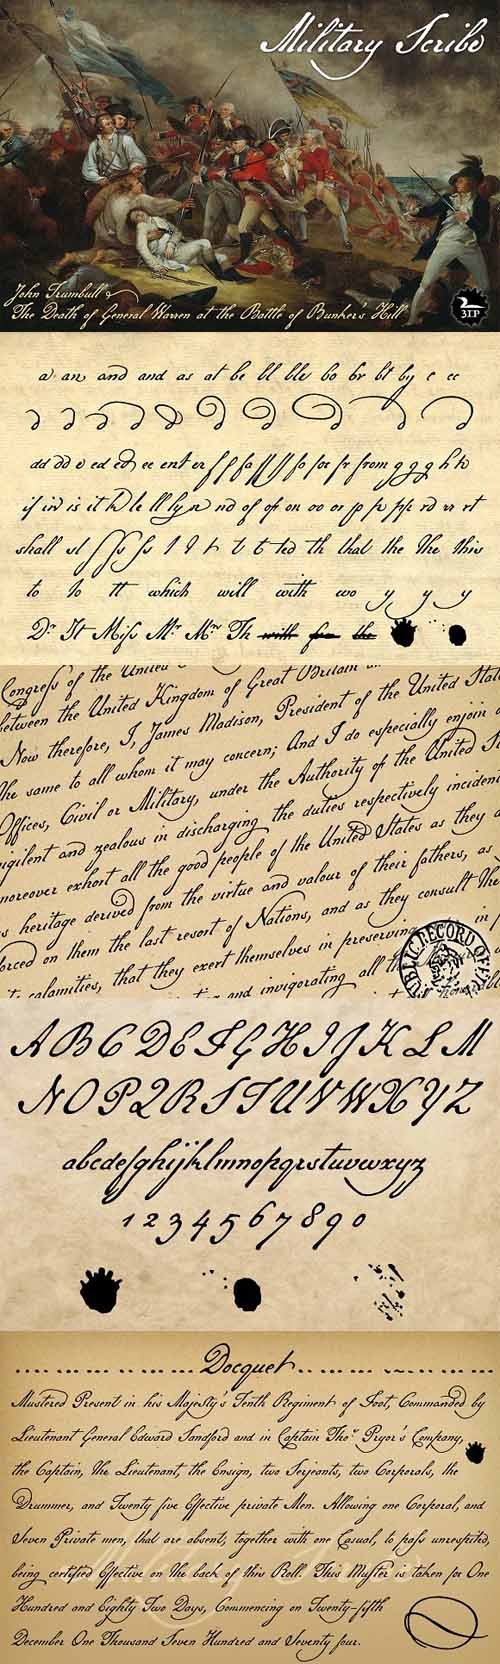 Military Scribe
John Trumbull
The Death of General Warren at the Battle of Bunker's Hill
3IP
a an and and as at be bl ble bo br bt by c cc
dd dd e ed ed ee ent er f f fa f f fo for fr from g g g h h
if in is it k le ll ly n nd of of on oo or p p pp rd rr rt
shall sl ſ ſs ſs t t t t t ted th that the the this
to to tt which will with wo y y y
Dr. It Miſs Mr Mrs Th with for the
Congreſs of the United
between the United Kingdom of Great Britain
Now therefore, I, James Madison, President of the United Stat
the same to all whom it may concern; And I do especially enjoin
Offices, Civil or Military, under the Authority of the United S
igilent and zealous in discharging the duties respectively inciden
moreover exhort all the good people of the United States as they
s heritage derived from the virtue and valour of their fathers, as
forced on them the last resort of Nations, and as they consult the
calamities, that they exert themselves in preserving in
and invigorating all
PUBLIC RECORD OFFI
A B C D E F G H I J K L M
N O P Q R S T U V W X Y Z
abcdefghijklmnopqrstuvwxyz
1 2 3 4 5 6 7 8 9 0
Docquet
Mustered Present in his Majesty's Tenth Regiment of Foot, Commanded by
Lieutenant General Edward Sandford and in Captain Thos Pryor's Company,
the Captain, the Lieutenant, the Ensign, two Serjeants, two Corporals, the
Drummer, and Twenty five Effective private Men. Allowing one Corporal, and
Seven Private men, that are absent, together with one Casual, to paſs unrespited,
being certified Effective on the back of this Roll. This Muſter is taken for One
Hundred and Eighty Two Days, Commencing on Twenty-fifth
December One Thousand Seven Hundred and Seventy four.